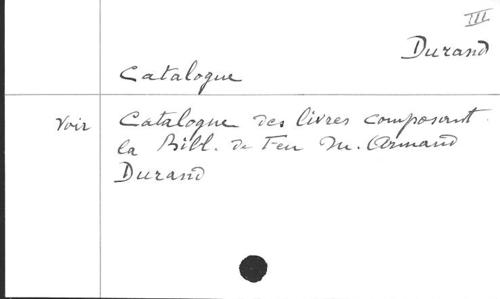 III
Durand
Catalogue
Voir Catalogue des livres composant
la Bibl. de Feu M. Armand
Durand